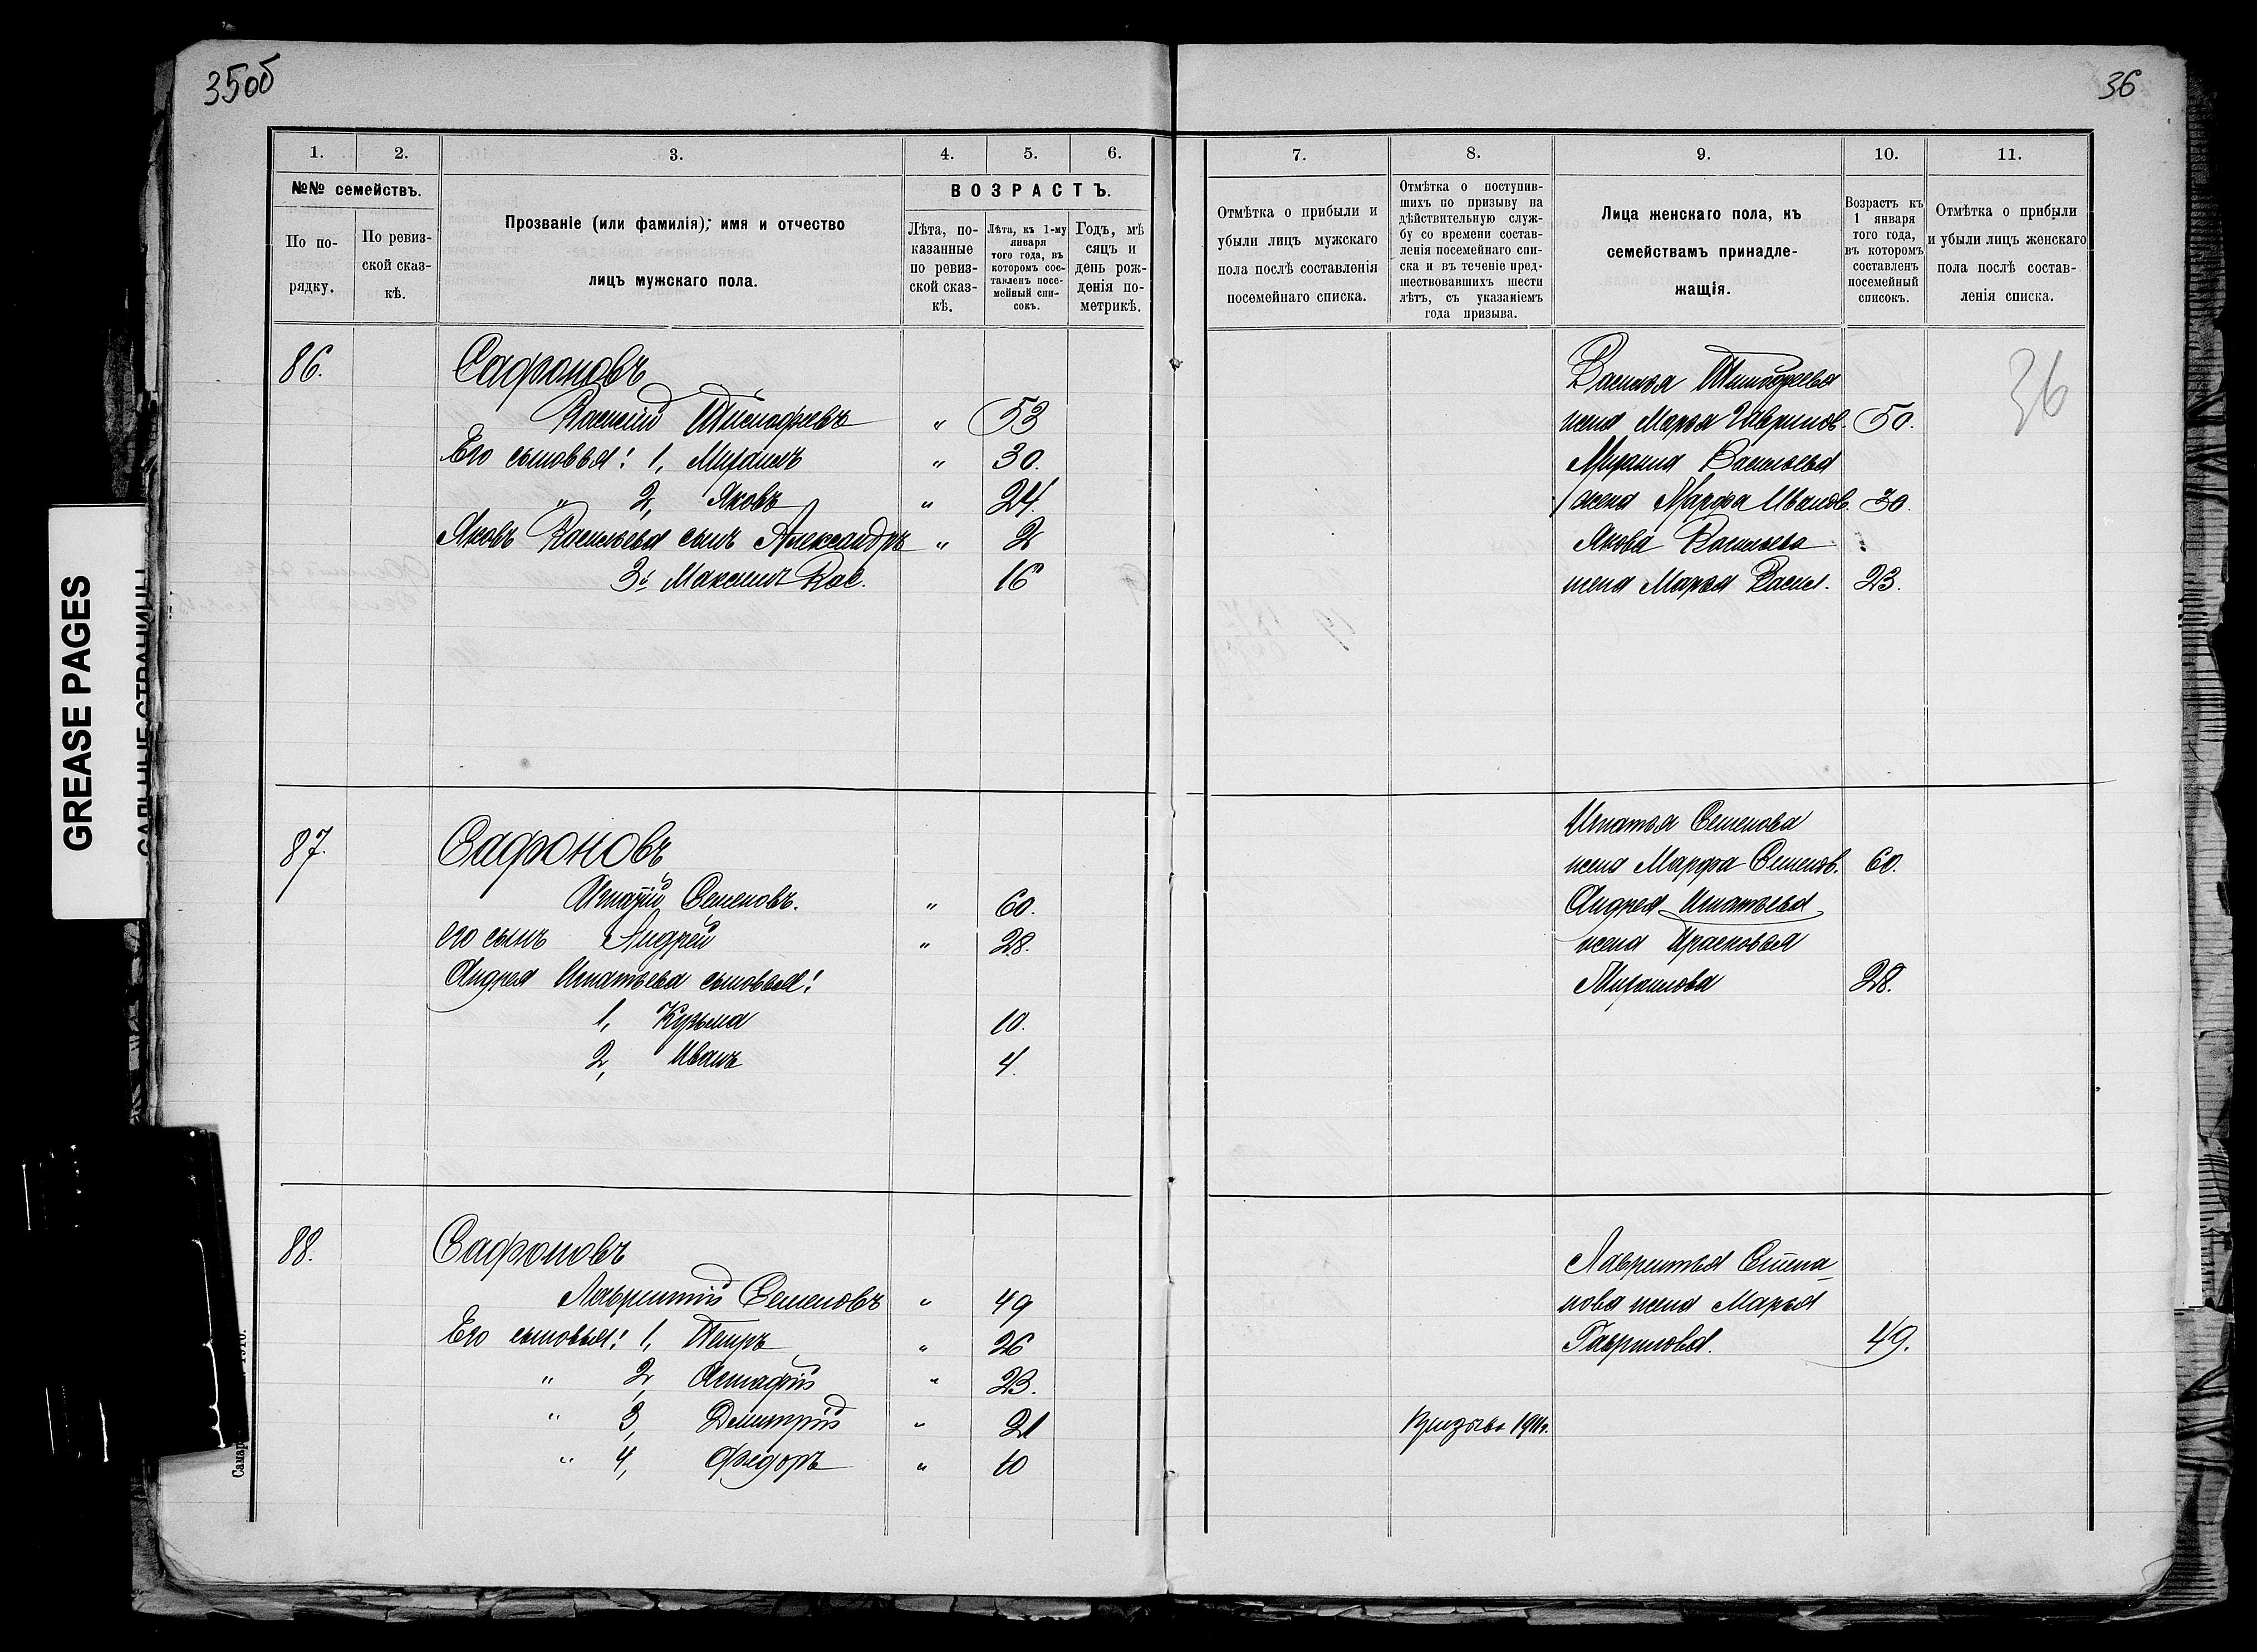 35об
36
1. 2. 3. 4. 5. 6.
№№ семействъ.
По по-
рядку.
По ревиз-
ской сказ-
кѣ.
Прозваніе (или фамилія); имя и отчество
лицъ мужскаго пола.
ВОЗРАСТЪ.
Лѣта, по-
казанные
по ревиз-
ской сказ-
кѣ.
Лѣта, къ 1-му
января
того года, въ
которомъ сос-
тавленъ посе-
мейный спи-
сокъ.
Годъ, мѣ
сяцъ и
день рож-
денія по-
метрикѣ.
86.
Сафроновъ
Василій Тимофѣевъ " 53
Его сыновья: 1, Михаилъ " 30.
" 2, Яковъ " 24.
Яковъ Васильева сынъ Александръ " 2
3, Максимъ Вас. 16
87.
Сафроновъ
Игнатій Семеновъ. " 60.
его сынъ Андрей " 28.
Андрея Игнатьева сыновья:
1, Кузьма 10.
2, Иванъ 4.
88.
Сафроновъ
Лаврентій Семеновъ " 49
Его сыновья: 1, Петръ " 26
" 2, " 23.
" 3, Дмитрій " 21
" 4, Федоръ " 10
7. 8. 9. 10. 11.
Отмѣтка о прибыли и
убыли лицъ мужскаго
пола послѣ составленія
посемейнаго списка.
Отмѣтка о поступив-
шихъ по призыву на
дѣйствительную служ-
бу со времени состав-
ленія посемейнаго спи-
ска и въ теченіе пред-
шествовавшихъ шести
лѣтъ, съ указаніемъ
года призыва.
Лица женскаго пола, къ
семействамъ принадле-
жащія.
Возрастъ къ
1 января
того года,
въ которомъ
составленъ
посемейный
списокъ.
Отмѣтка о прибыли
и убыли лицъ женскаго
пола послѣ состав-
ленія списка.
36
Василья Тимофеева
жена Марья Гаврилов. 50.
Михаила Васильева
жена Марфа Иванов. 30.
Якова Васильева
жена Марья Васил. 23.
Игнатья Семенова
жена Марфа Семенов. 60.
Андрея Игнатьева
жена Прасковья
Михаилова 28.
Лаврентья Степа-
нова жена Марья
Гаврилова. 49.
Призыва 1911г.
GREASE PAGES